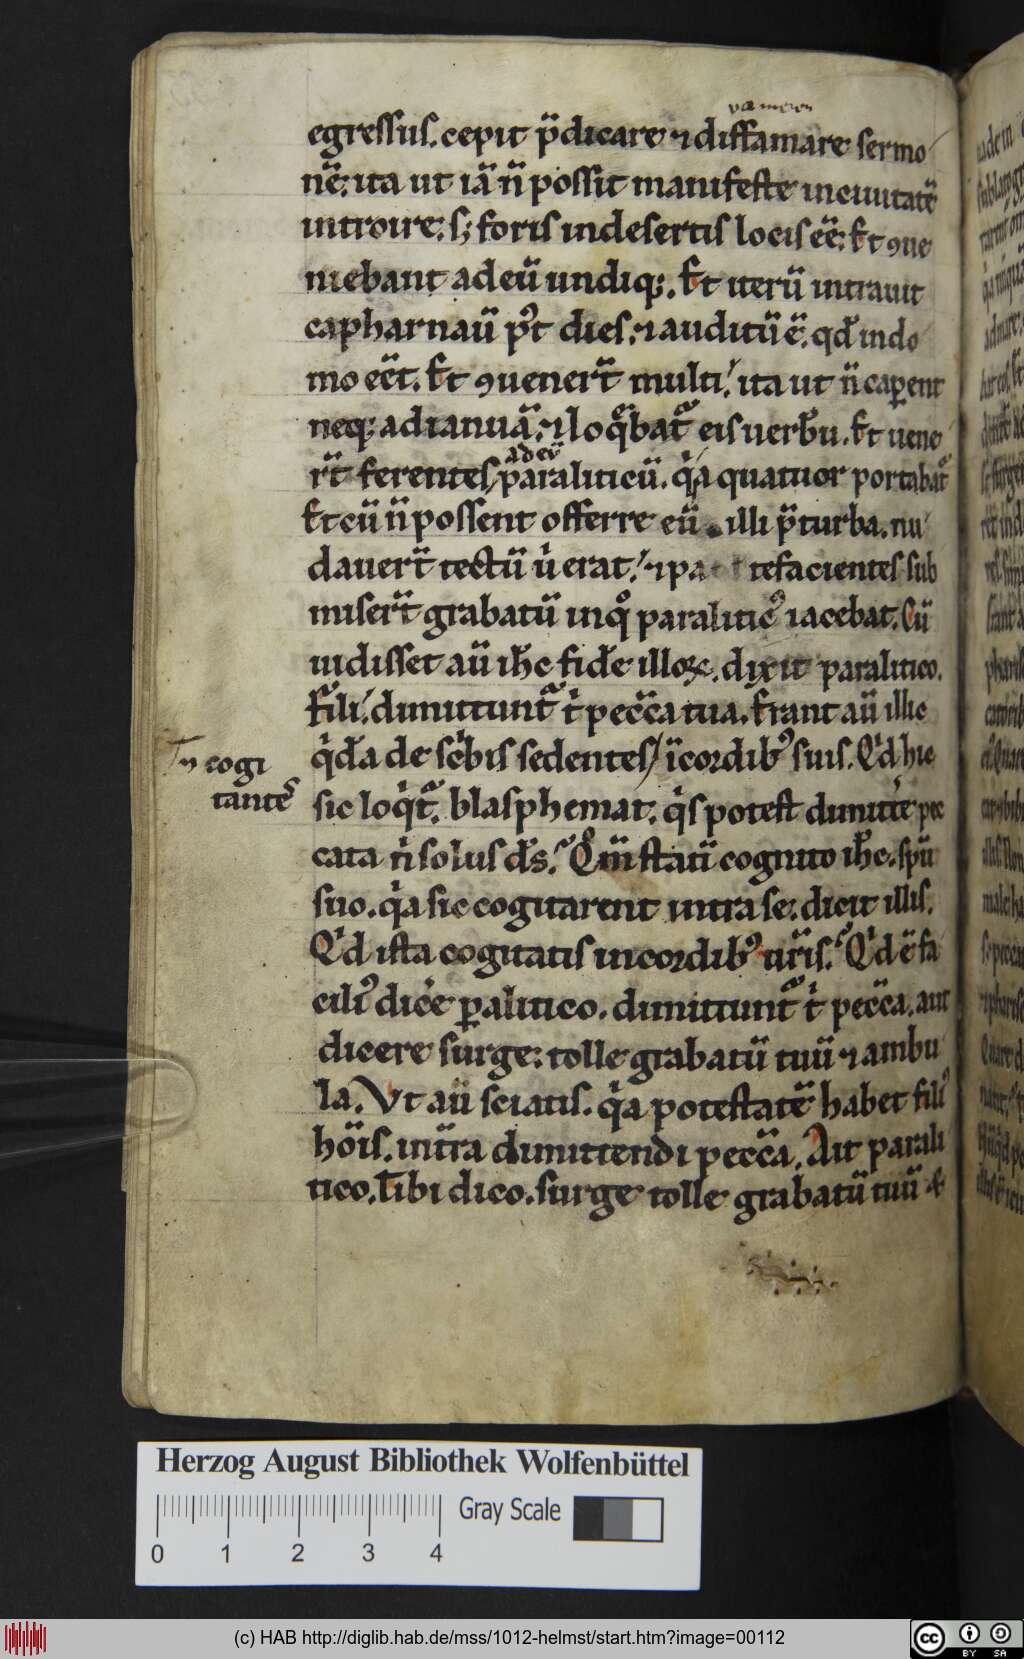 egressus. cepit p̄dicare ⁊ diffamare sermo
nē: ita ut iā n̄ possit manifeste in ciuitatē
introire: s; foris in desertis locis eē: Et ꝯue
niebant ad eū undiq;. Et iterū intrauit
capharnaū p᷒t dies. ⁊ auditū ē. qd̄ in do
mo eēt. Et ꝯuenert̄ multi. ita ut n̄ caꝑent
neq; ad ianuā. ⁊ loq̄bat᷑ eis uerbū. Et uene
rt̄ ferentes
ad eū
paraliticū. qͥa quatuor portabat᷑
Et cū n̄ possent offerre eū illi p̄ turba. nu
dauert̄ tectū uͥ erat. ⁊ pa tefacientes sub
misert̄ grabatū in qͦ paralitic᷒ iacebat. Cū
uidisset aū ih̄c fidē illoꝝ. dixit paralitico.
Fili. dimittunt᷑ tͥ pecc̄a tua. Erant aū illic
qͥdā de scͥbis sedentes ⁊ ī cordib᷒ suis. Qͥd hic
In cogi
tantes
sic loqͥt᷑. blasphemat. qͥs potest dimittͥe pec
cata nͥ solus ds̄. Qͦm̄ statī cognito ih̄c. spū
suo. qͥa sic cogitarent intra se: dicit illis.
Qͥd ista cogitatis in cordib᷒ ur̄is. Qͥd ē fa
cili᷒ dicͥe ꝑalitico. dimittunt᷑ tͥ pecc̄a. aut
dicere surge: tolle grabatū tuū ⁊ ambu
la. Vt aū sciatis. qͥa potestatē habet fili᷒
hoīs. in tr̄ra dimittendi pecc̄a. Ait parali
tico. Tibi dico. surge tolle grabatū tuū &
Herzog August Bibliothek Wolfenbüttel
Gray Scale
0 1 2 3 4
(c) HAB http://diglib.hab.de/mss/1012-helmst/start.htm?image=00112
cc BY SA